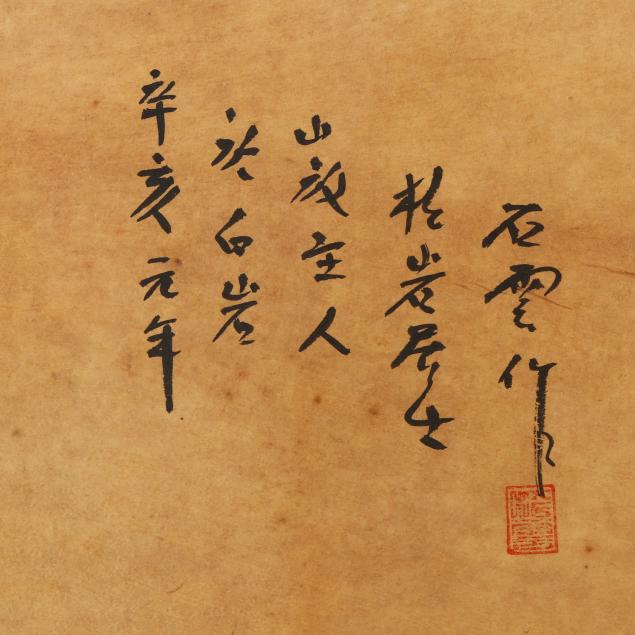 辛亥元年
於白岩
山主人
松岩居士
石雲作